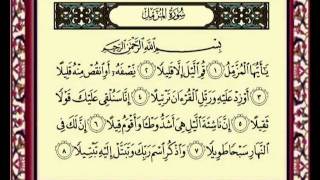 سُورَةُ المُزَّمِّلِ
بِسْمِ اللَّهِ الرَّحْمَٰنِ الرَّحِيمِ
يَا أَيُّهَا الْمُزَّمِّلُ ۝١ قُمِ اللَّيْلَ إِلَّا قَلِيلًا ۝٢ نِّصْفَهُ أَوِ انقُصْ مِنْهُ قَلِيلًا
۝٣ أَوْ زِدْ عَلَيْهِ وَرَتِّلِ الْقُرْءَانَ تَرْتِيلًا ۝٤ إِنَّا سَنُلْقِي عَلَيْكَ قَوْلًا
ثَقِيلًا ۝٥ إِنَّ نَاشِئَةَ اللَّيْلِ هِيَ أَشَدُّ وَطْئًا وَأَقْوَمُ قِيلًا ۝٦ إِنَّ لَكَ فِي
النَّهَارِ سَبْحًا طَوِيلًا ۝٧ وَاذْكُرِ اسْمَ رَبِّكَ وَتَبَتَّلْ إِلَيْهِ تَبْتِيلًا ۝٨